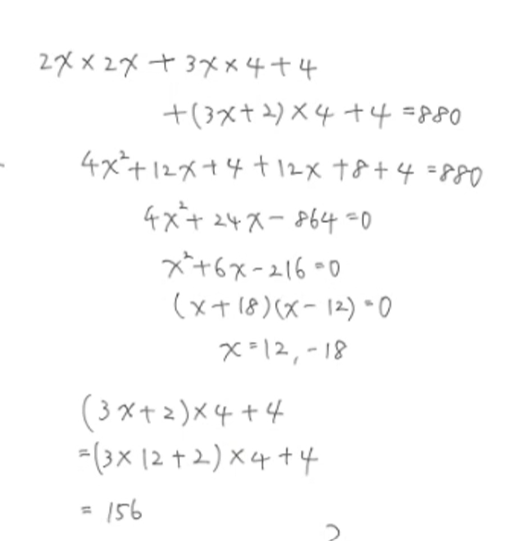 2x × 2x + 3x × 4 + 4
+ (3x + 2) × 4 + 4 = 880
4x² + 12x + 4 + 12x + 8 + 4 = 880
4x² + 24x - 864 = 0
x² + 6x - 216 = 0
(x + 18)(x - 12) = 0
x = 12, -18
(3x + 2) × 4 + 4
= (3 × 12 + 2) × 4 + 4
= 156